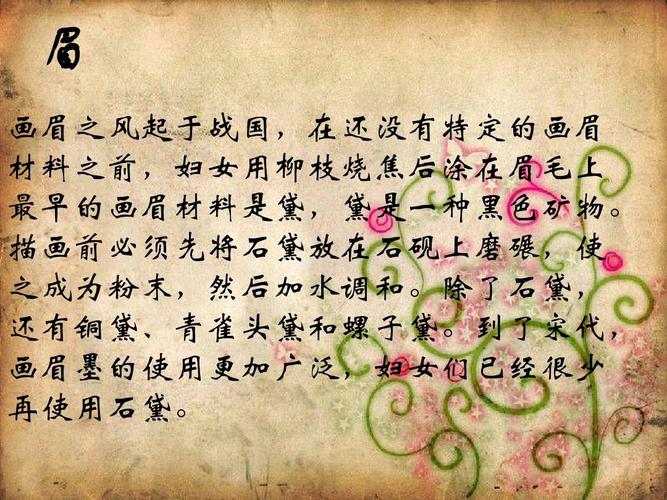 眉
画眉之风起于战国，在还没有特定的画眉
材料之前，妇女用柳枝烧焦后涂在眉毛上
最早的画眉材料是黛，黛是一种黑色矿物。
描画前必须先将石黛放在石砚上磨碾，使
之成为粉末，然后加水调和。除了石黛，
还有铜黛、青雀头黛和螺子黛。到了宋代，
画眉墨的使用更加广泛，妇女们已经很少
再使用石黛。